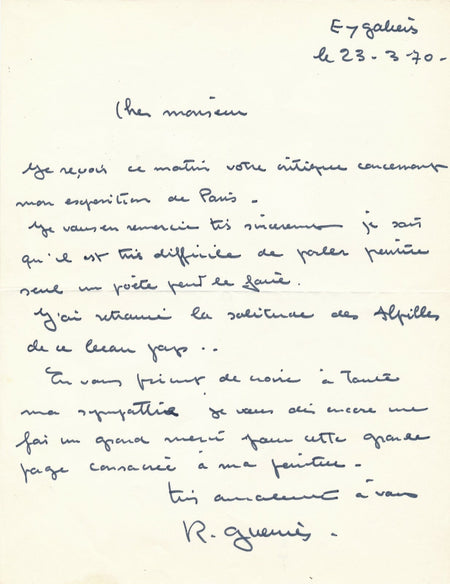 Eygalieres
le 23 - 3 - 70 -
Cher monsieur
Je reçois ce matin votre critique concernant
mon exposition de Paris -
Je vous en remercie très sincèrement je sait
qu'il est très difficile de parler peinture
seul un poète peut le faire.
J'ai retrouvé la solitude des Alpilles
de ce beau pays . .
En vous priant de croire à toute
ma sympathie je vous dis encore une
fois un grand merci pour cette grande
page consacrée à ma peinture -
très amicalement à vous
R. Guerrès -